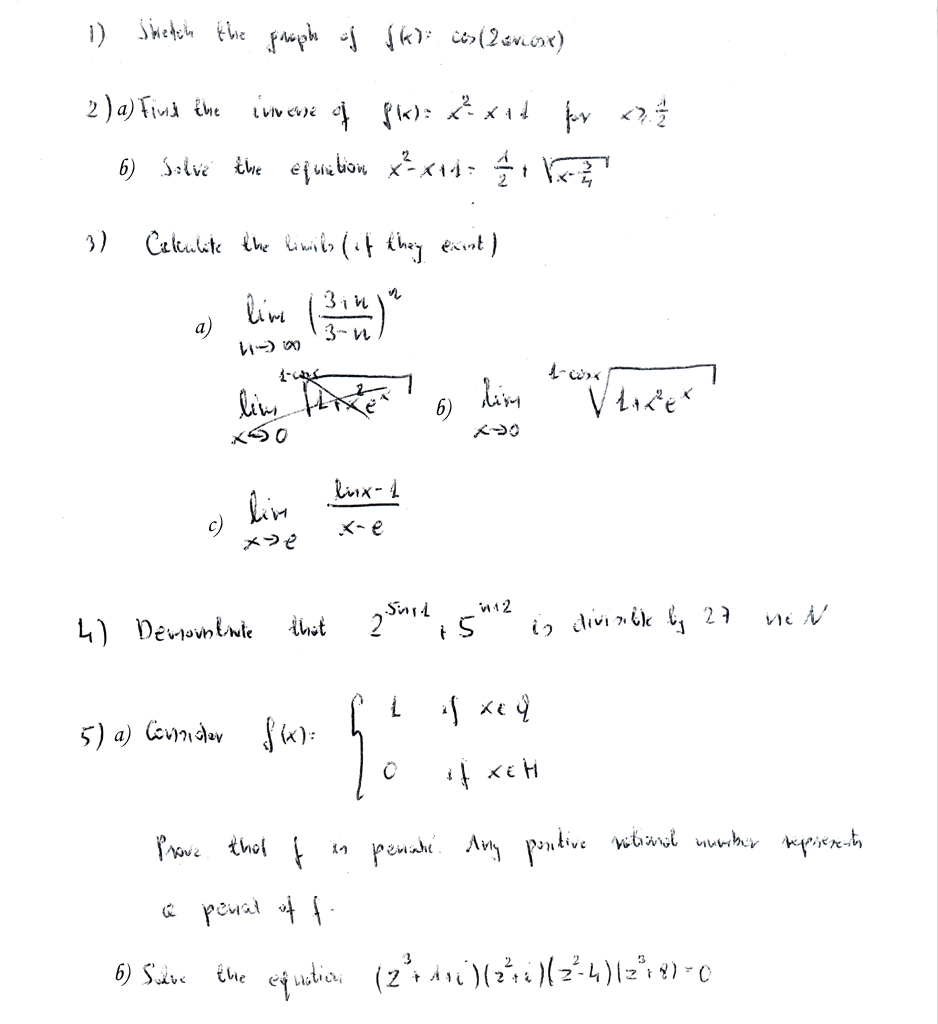 1) Sketch the graph of f(x) = cos(2arccosx)
2) a) Find the inverse of f(x) = x² - x + 1 for x ≥ 1/2
б) Solve the equation x² - x + 1 = 1/2 + √(x - 3/4)
3) Calculate the limits (if they exist)
a) lim n→∞ ((3+n)/(3-n))^n
lim x→0 ^(1-cosx)√(1+x²e^x) б) lim x→0 ^(1-cosx)√(1+x²e^x)
c) lim x→e (lnx-1)/(x-e)
4) Demonstrate that 2^(5n+1) + 5^(n+2) is divisible by 27 n∈N
5) a) Consider f(x) = { 1 if x∈Q
0 if x∈H
Prove that f is periodic. Any positive rational number represents
a period of f.
б) Solve the equation (z³+1+i)(z²+i)(z²-4)(z³+8)=0